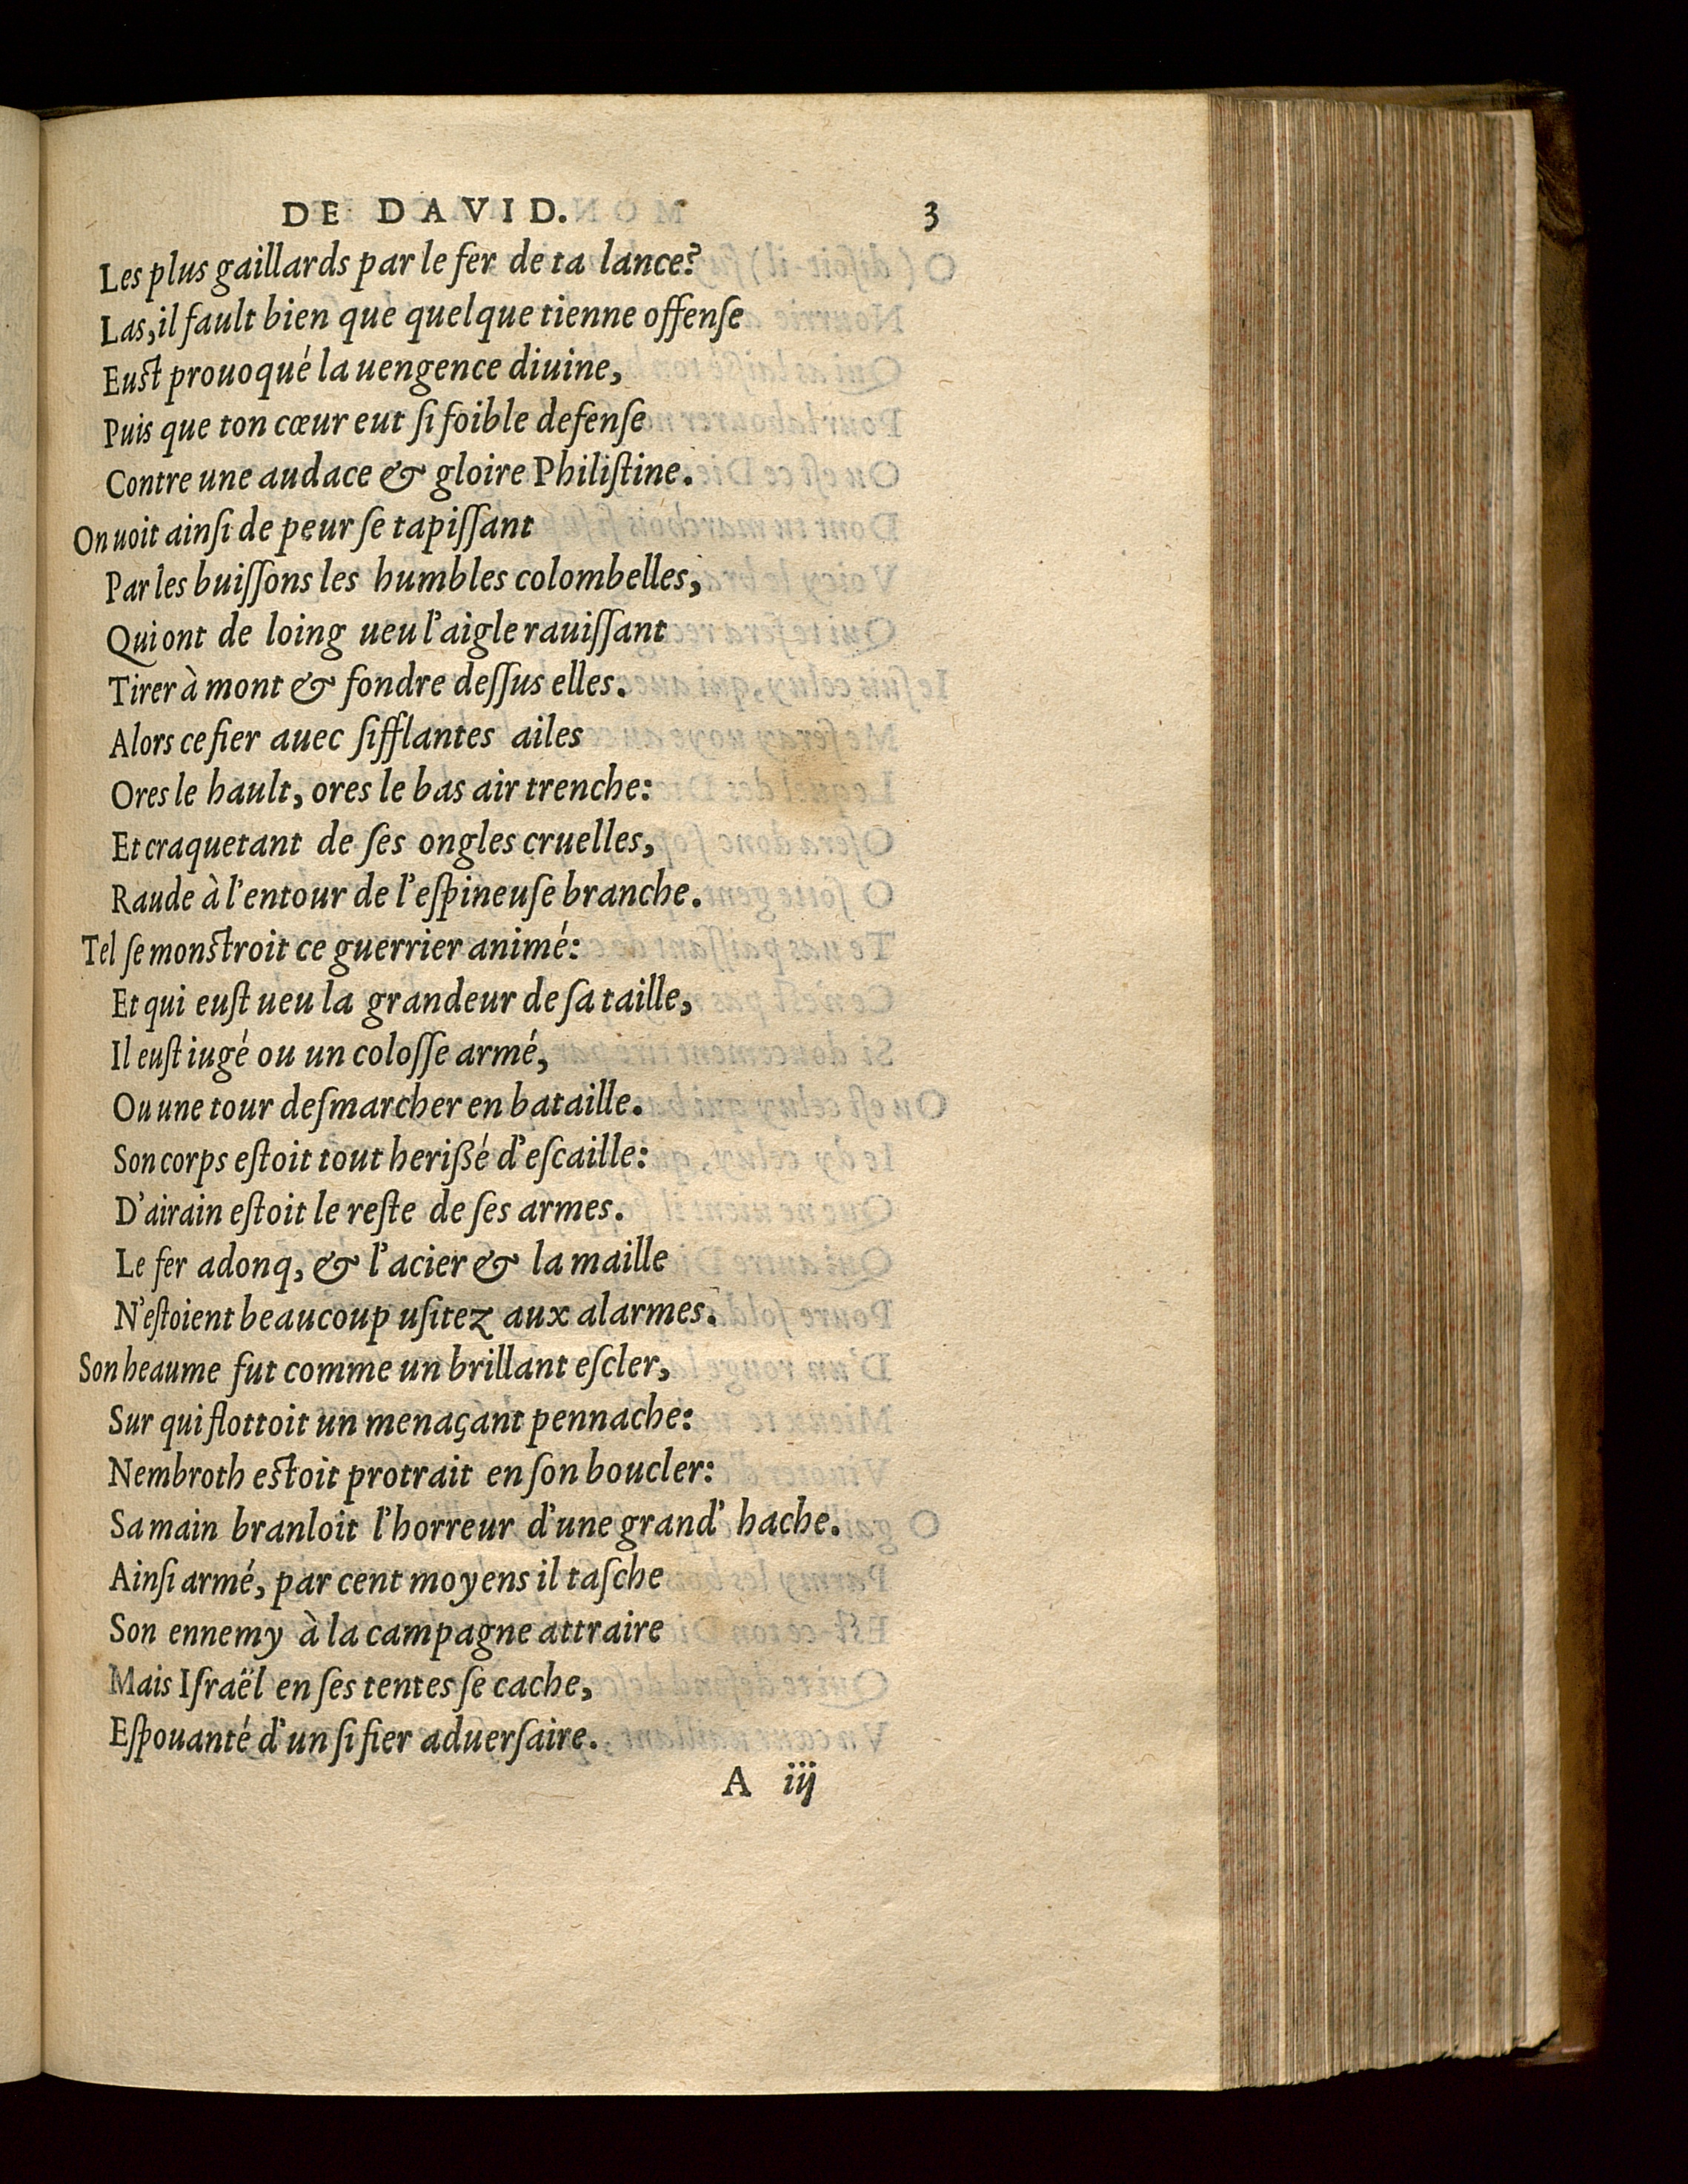 DE DAVID. 3
Les plus gaillards par le fer de ta lance?
Las, il fault bien que quelque tienne offenſe
Euſt prouoqué la uengence diuine,
Puis que ton cœur eut ſi foible defenſe
Contre une audace & gloire Philiſtine.
On uoit ainſi de peur ſe tapiſſant
Par les buiſſons les humbles colombelles,
Qui ont de loing ueu l'aigle rauiſſant
Tirer à mont & fondre deſſus elles.
Alors ce fier auec ſifflantes ailes
Ores le hault, ores le bas air trenche:
Et craquetant de ſes ongles cruelles,
Raude à l'entour de l'eſpineuſe branche.
Tel ſe monſtroit ce guerrier animé:
Et qui euſt ueu la grandeur de ſa taille,
Il euſt iugé ou un coloſſe armé,
Ou une tour deſmarcher en bataille.
Son corps eſtoit tout herißé d'eſcaille:
D'airain eſtoit le reſte de ſes armes.
Le fer adonq, & l'acier & la maille
N'eſtoient beaucoup uſitez aux alarmes.
Son heaume fut comme un brillant eſcler,
Sur qui flottoit un menaçant pennache:
Nembroth eſtoit protrait en ſon boucler:
Sa main branloit l'horreur d'une grand' hache.
Ainſi armé, par cent moyens il taſche
Son ennemy à la campagne attraire
Mais Iſraël en ſes tentes ſe cache,
Eſpouanté d'un ſi fier aduerſaire.
A iij